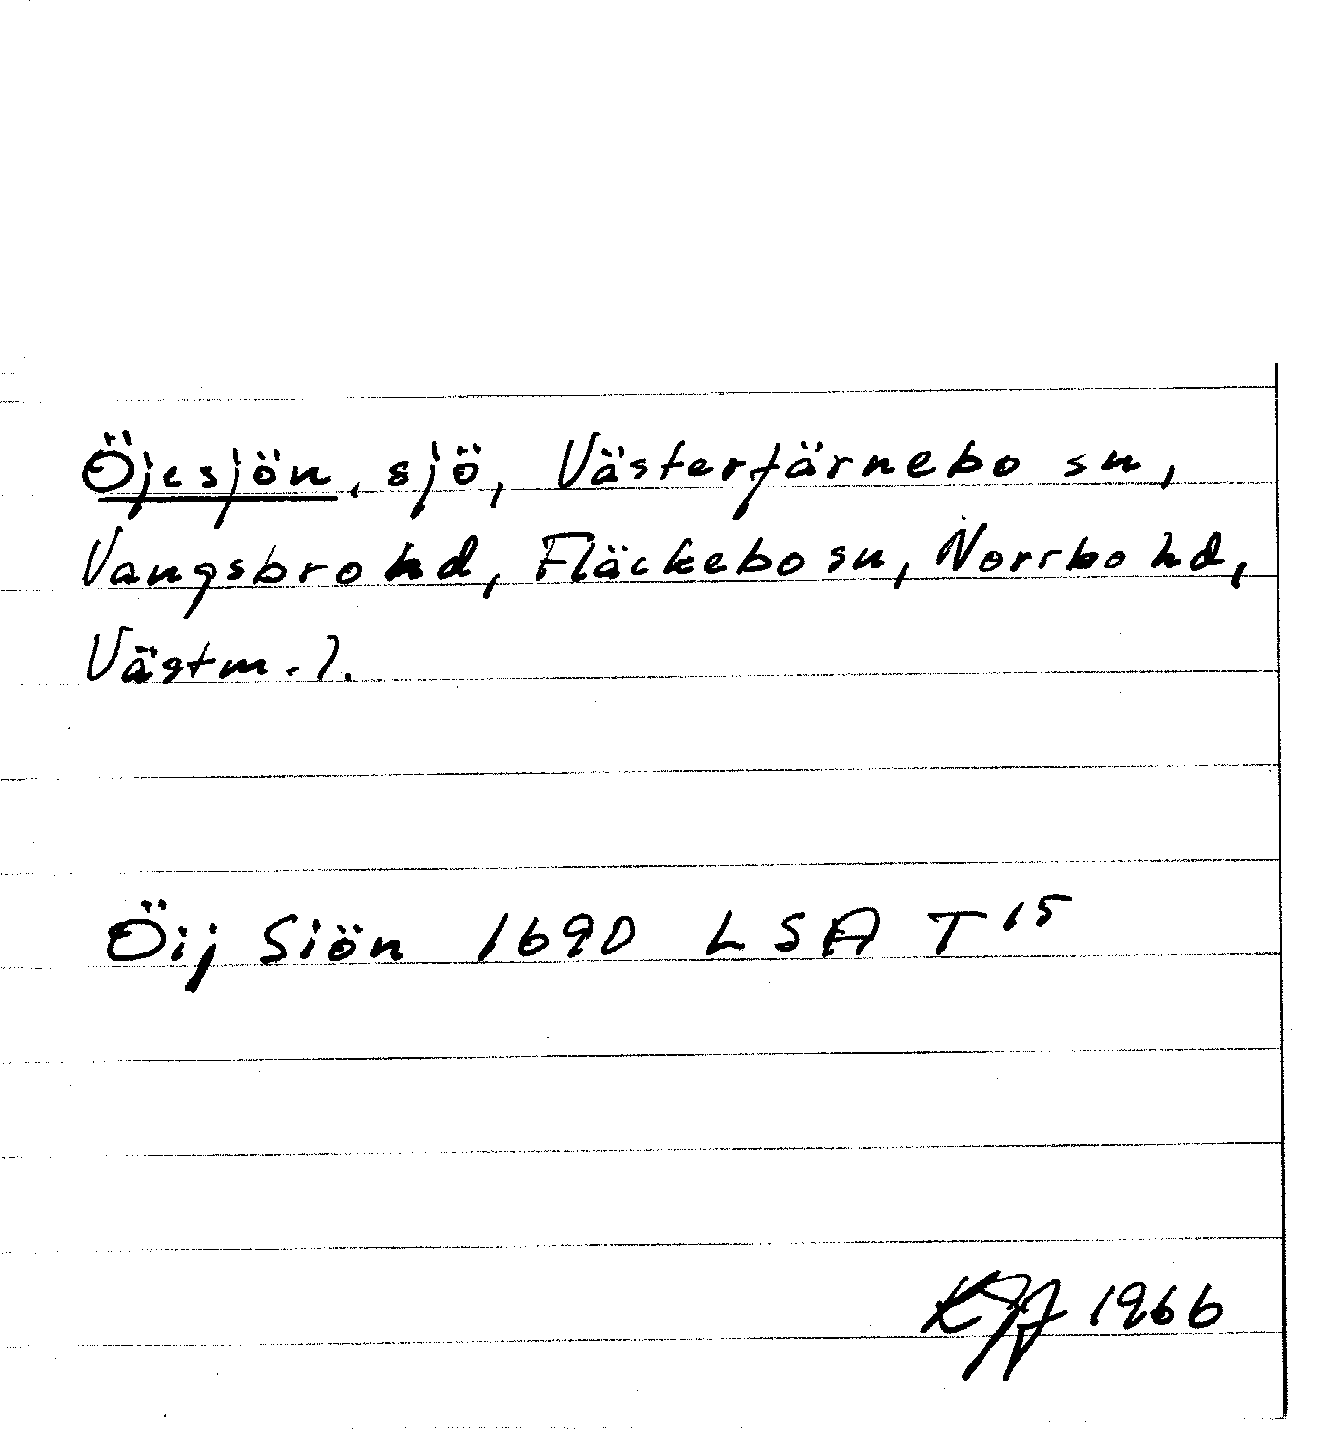 Öjesjön, sjö, Västerfärnebo sn,
Vangsbro hd, Fläckebo sn, Norrbo hd,
Västm. l.
Öij Siön 1690 LSA T 15
1966